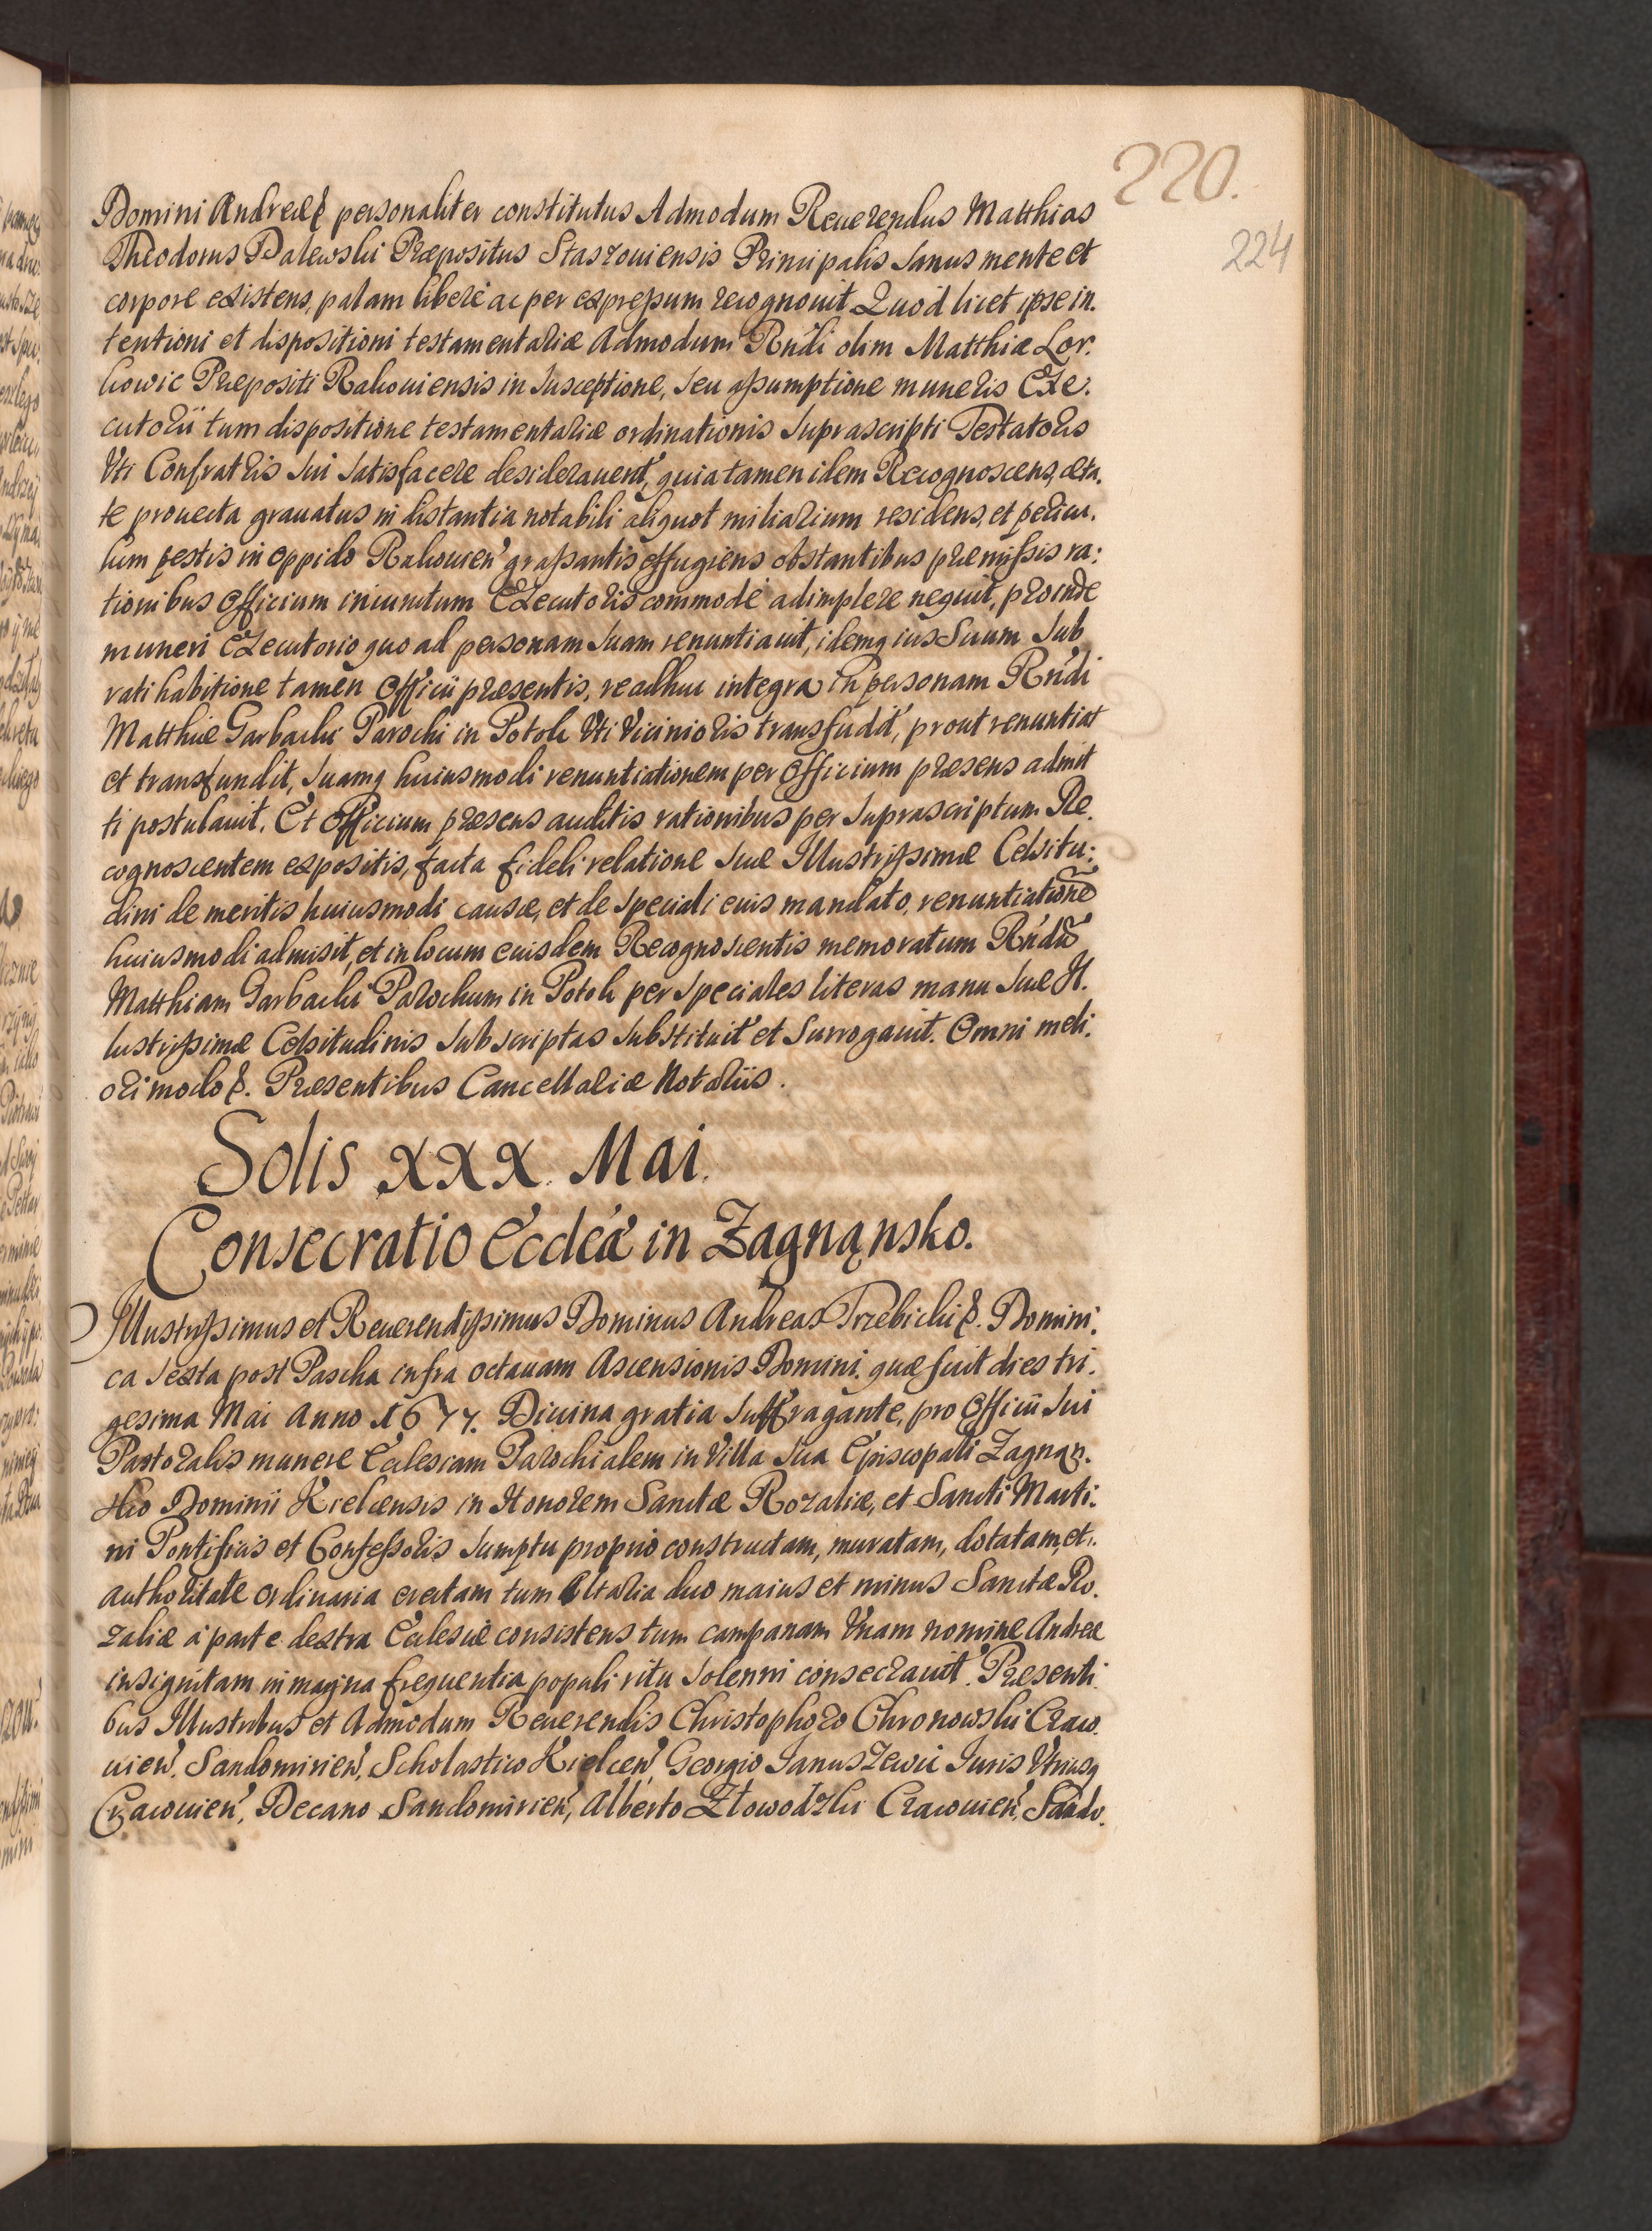 220.
224
Domini Andreæ &. personaliter constitutus Admodum Reuerendus Matthias
Theodorus Dalewski Præpositus Staszouiensis Principalis Sanus mente et
corpore existens, palam liberè ac per expressum recognouit Quod licet ipse in.
tentioni et dispositioni testamentariæ Admodum Rndi olim Matthiæ Lor.
kowic Præpositi Rakouiensis in Susceptione, Seu assumptione muneris Exe.
cutorii tum dispositione testamentariæ ordinationis Suprascripti Testatoris
Vti Confratris Sui Satisfacere desiderauerit, quia tamen idem Recognoscens, æta.
te prouecta grauatus in distantia notabili aliquot miliarium residens, et pericu.
lum pestis in oppido Rakouien' grassantis effugiens obstantibus præmissis ra:
tionibus officium iniunctum Executoris commodè adimplere nequit, proinde
muneri Executorio quo ad personam Suam renuntiauit, idemq ius Suum Sub
rati habitione tamen Officii præsentis, re adhuc integra in personam Rndi
Matthiæ Garbacki Parochi in Potok Vti Vicinioris transfudit, prout renuntiat
et transfundit, Suamq huiusmodi renuntiationem per Officium præsens admit
ti postulauit. Et Officium præsens auditis rationibus per Suprascriptum Re.
cognoscentem expositis, facta fideli relatione Suæ Illustrissimæ Celsitu:
dini de meritis huiusmodi causæ, et de Speciali eius mandato, renuntiatione
huiusmodi admisit, et in locum eiusdem Recognoscentis memoratum Rndũ
Matthiam Garbacki Parochum in Potok per Speciales literas manu Suæ Il.
lustrissimæ Celsitudinis Subscriptas Substituit et Surrogauit. Omni meli.
ori modo &. Præsentibus Cancellariæ Notariis.
Solis xxx. Mai.
Consecratio Eccleæ in Zagnąnsko.
Illustrissimus et Reuerendissimus Dominus Andreas Trzebicki &. Domini.
ca Sexta post Pascha infra octauam Ascensionis Domini. quæ fuit dies tri.
gesima Mai Anno 1677. Diuina gratia Suffragante, pro Officii Sui
Pastoralis munere Ecclesiam Parochialem in Villa Sua Episcopali Zagnąn.
sko Dominii Kielcensis in Honorem Sanctæ Rozaliæ, et Sancti Marti.
ni Pontificis et Confessoris Sumptu proprio constructam, muratam, dotatam, et.
authoritate Ordinaria erectam tum Altaria duo maius et minus Sanctæ Ro.
zaliæ à parte dextra Ecclesiæ consistens tum campanam Vnam nomine Andreæ
insignitam in magna frequentia populi ritu Solenni consecrauit. Præsenti.
bus Illustribus et Admodum Reuerendis Christophoro Chronowski Craco.
uien'. Sandomirien', Scholastico Kielcen' Georgio Januszewic Juris Vtriusq
Cracouien', Decano Sandomirien', Alberto Złowodzki Cracouien', Sando.